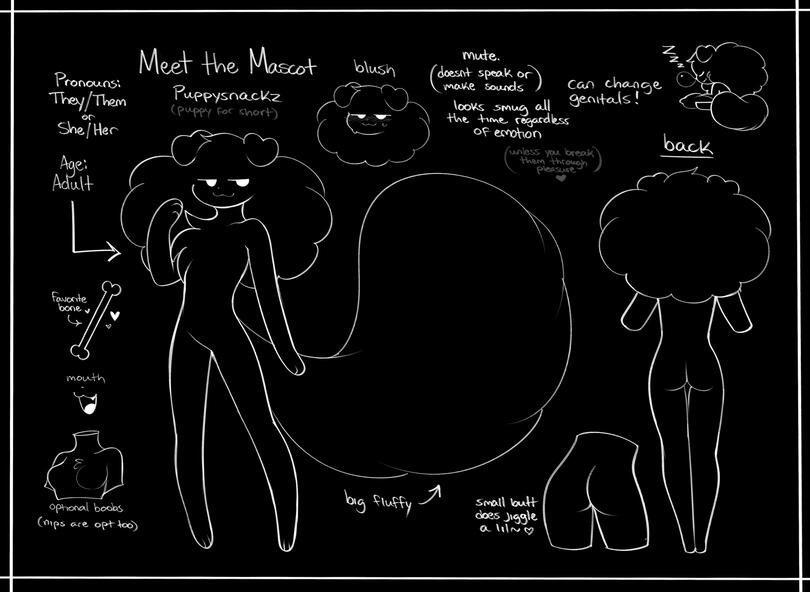 Meet the Mascot
Puppysnackz
(puppy for short)
Pronouns:
They/Them
or
She/Her
Age:
Adult
Favorite
bone
mouth
optional boobs
(nips are opt too)
blush
mute.
(doesnt speak or
make sounds)
looks smug all
the time regardless
of emotion
(unless you break
them through
pleasure
can change
genitals!
z
z
z
back
big fluffy
small butt
does jiggle
a lil~